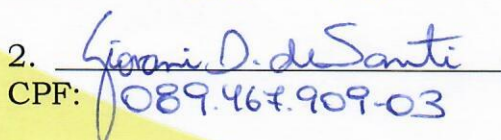 2. Giovani D. de Santi
CPF: 089.467.909-03